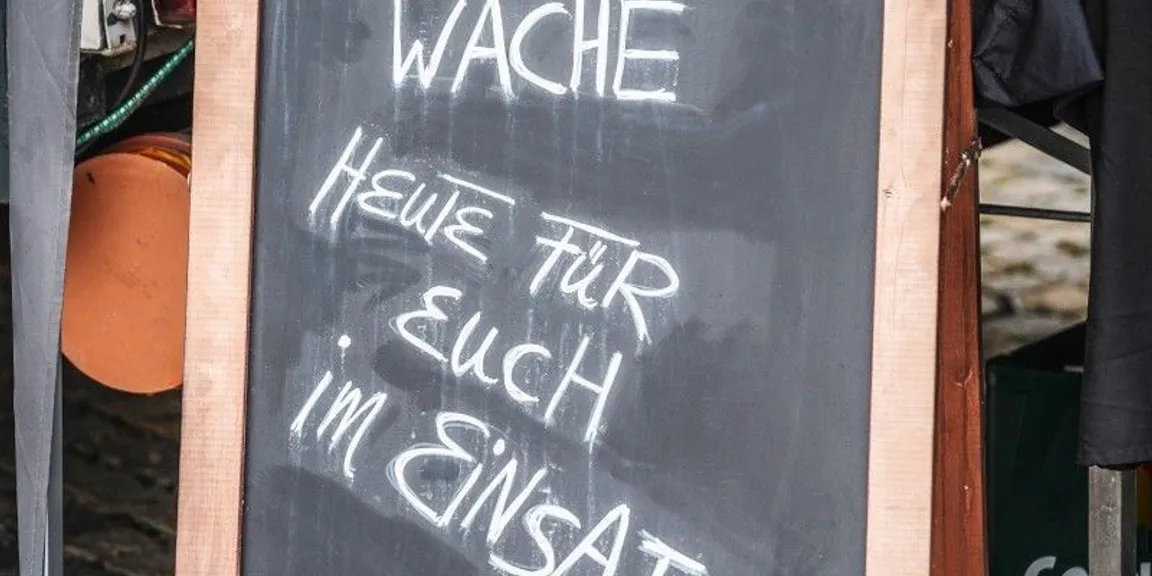 WACHE
HEUTE FÜR
EUCH
iM EiNSAT